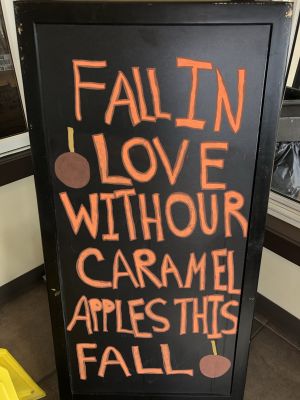 FALL IN
LOVE
WITHOUR
CARAMEL
APPLES THIS
FALL